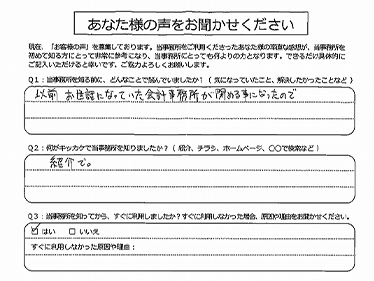 あなた様の声をお聞かせください
現在、「お客様の声」を募集しております。当事務所をご利用くださったあなた様の率直な感想が、当事務所を
初めて知る方にとって非常に参考になり、当事務所にとっても何よりの力となります。できるだけ具体的に
ご記入いただけると幸いです。ご協力よろしくお願いします。
Q1：当事務所を知る前に、どんなことで悩んでいましたか？（気になっていたこと、解決したかったことなど）
以前 お世話になっていた会計事務所が閉める事になったので
Q2：何がキッカケで当事務所を知りましたか？（紹介、チラシ、ホームページ、〇〇で検索など）
紹介で。
Q3：当事務所を知ってから、すぐに利用しましたか？すぐに利用しなかった場合、原因や理由をお聞かせください。
☑ はい　□ いいえ
すぐに利用しなかった原因や理由：